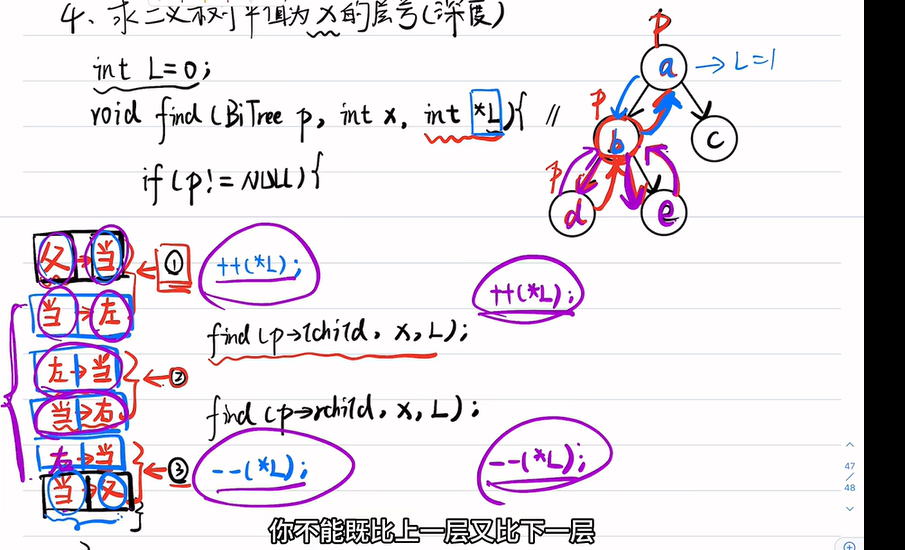 4、求二叉树中值为x的层号(深度)
int L=0;
void find(BiTree p, int x, int *L){ //
if(p!=NULL){
p
a → L=1
p
b
c
p
d
e
父→当
① ++(*L);
++(*L);
当→左
find(p→lchild, x, L);
左→当
②
当→右
find(p→rchild, x, L);
右→当
③ --(*L);
--(*L);
当→父
}
47
/
48
你不能既比上一层又比下一层